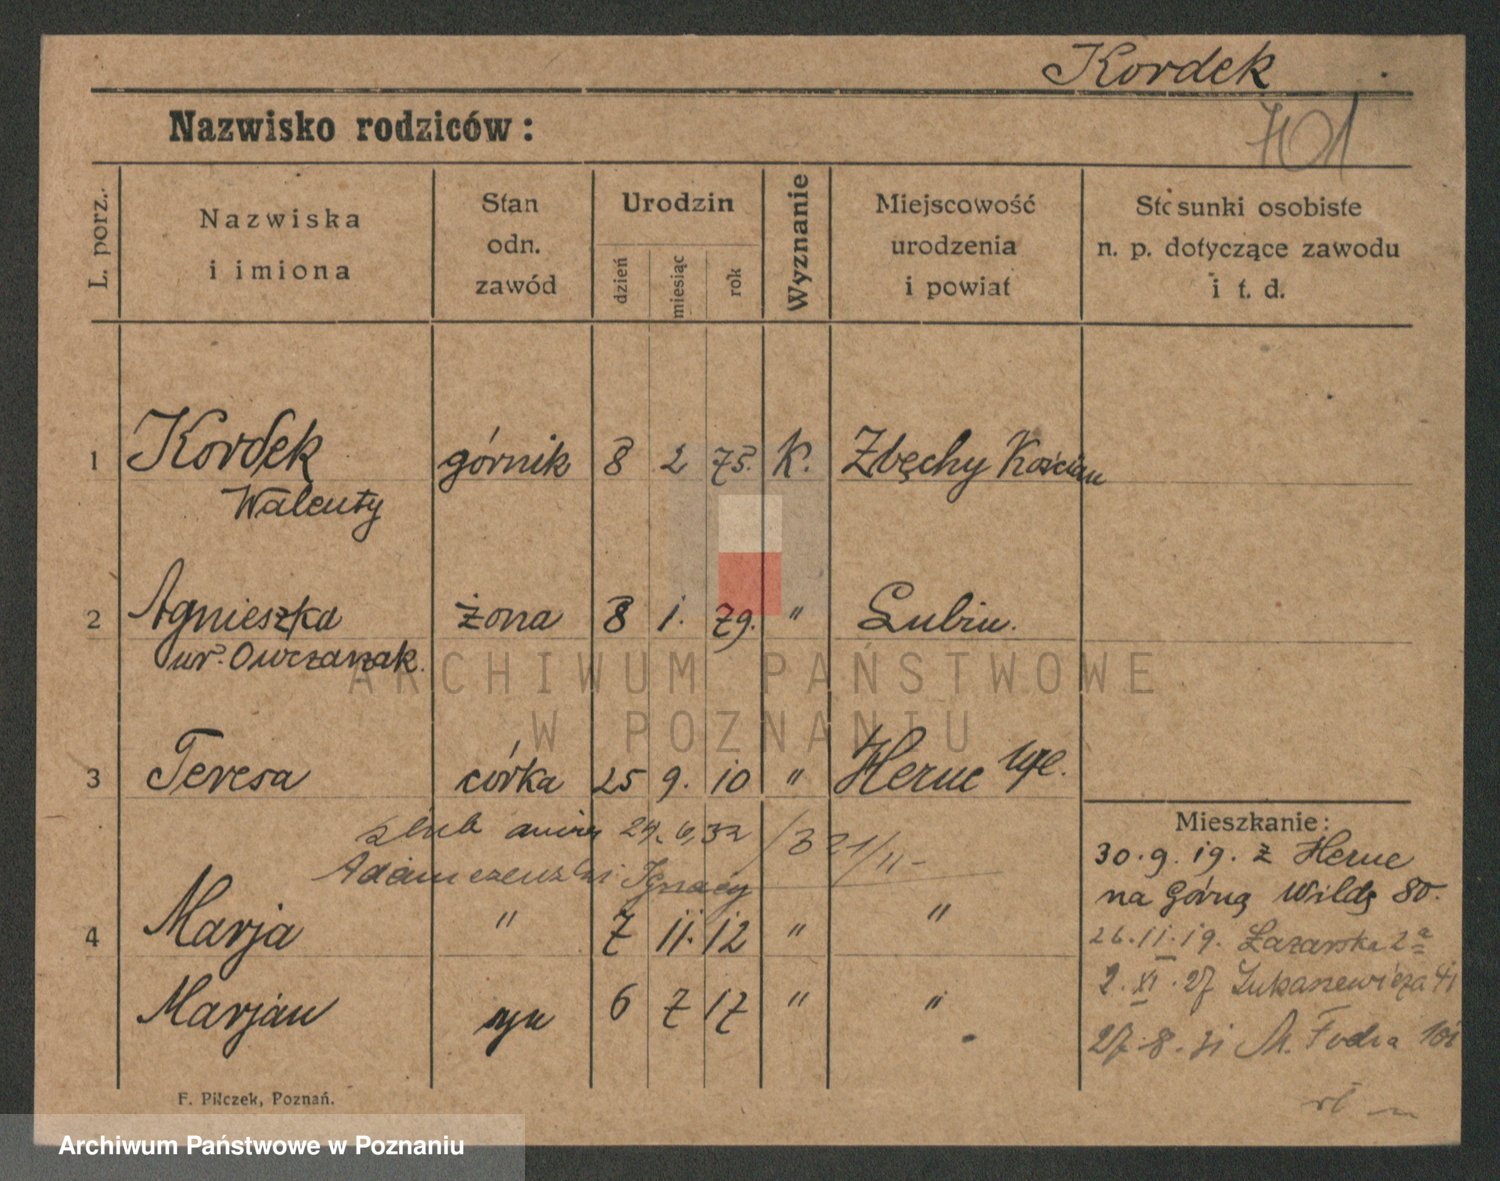 Kordek
701
Nazwisko rodziców:
L. porz.
Nazwiska
i imiona
Stan
odn.
zawód
Urodzin
dzień
miesiąc
rok
Wyznanie
Miejscowość
urodzenia
i powiat
Stosunki osobiste
n. p. dotyczące zawodu
i t. d.
1 Kordek górnik 8 2 75. K. Zbęchy Kościan
Walenty
2 Agnieszka żona 8 1. 79. " Lubin.
ur. Owczarzak.
3 Teresa córka 25 9. 10 " Herne
ślub 24. 6, 32 /321/II-
Ignacy
4 Marja " 7 11. 12 " "
Marjan syn 6 7 17 " "
Mieszkanie:
30.9.19. z Herne
na Górną Wildę 80.
26.II.19. Łazarska 2a
2.XI.27 Łukaszewicza 41
27.8.31 M. Focha
F. Pilczek, Poznań.
ARCHIWUM PAŃSTWOWE
W POZNANIU
Archiwum Państwowe w Poznaniu